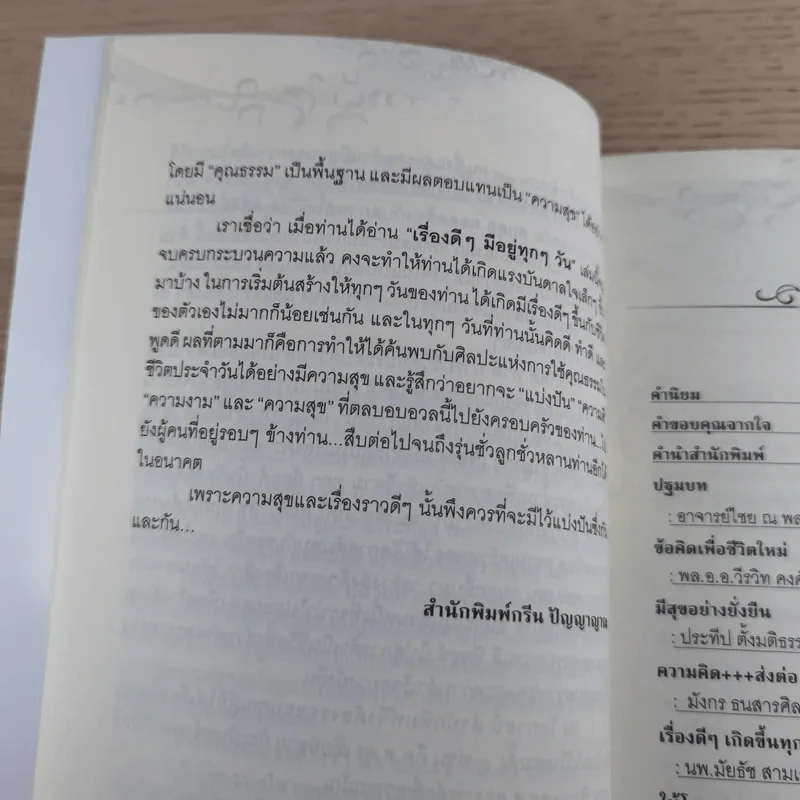 โดยมี “คุณธรรม” เป็นพื้นฐาน และมีผลตอบแทนเป็น “ความสุข” ได้อย่าง
แน่นอน
เราเชื่อว่า เมื่อท่านได้อ่าน “เรื่องดีๆ มีอยู่ทุกๆ วัน” เล่มนี้
จบครบกระบวนความแล้ว คงจะทำให้ท่านได้เกิดแรงบันดาลใจเล็กๆ
มาบ้าง ในการเริ่มต้นสร้างให้ทุกๆ วันของท่าน ได้เกิดมีเรื่องดีๆ ขึ้นกับ
ของตัวเองไม่มากก็น้อยเช่นกัน และในทุกๆ วันที่ท่านนั้นคิดดี ทำดี
พูดดี ผลที่ตามมาก็คือการทำให้ได้ค้นพบกับศิลปะแห่งการใช้คุณธรรม
ชีวิตประจำวันได้อย่างมีความสุข และรู้สึกว่าอยากจะ “แบ่งปัน”
“ความงาม” และ “ความสุข” ที่ตลบอบอวลนี้ไปยังครอบครัวของท่าน
ยังผู้คนที่อยู่รอบๆ ข้างท่าน...สืบต่อไปจนถึงรุ่นชั่วลูกชั่วหลานท่านอีก
ในอนาคต
เพราะความสุขและเรื่องราวดีๆ นั้นพึงควรที่จะมีไว้แบ่งปันซึ่งกัน
และกัน...
สำนักพิมพ์กรีน ปัญญาญาณ
คำนิยม
คำขอบคุณจากใจ
คำนำสำนักพิมพ์
ปฐมบท
: อาจารย์ไชย ณ พล
ข้อคิดเพื่อชีวิตใหม่
: พล.อ.อ.วีรวิท คง
มีสุขอย่างยั่งยืน
: ประทีป ตั้งมติธรร
ความคิด+++ส่งต่อ
: มังกร ธนสารศิล
เรื่องดีๆ เกิดขึ้นทุก
: นพ.มัยธัช สามเ